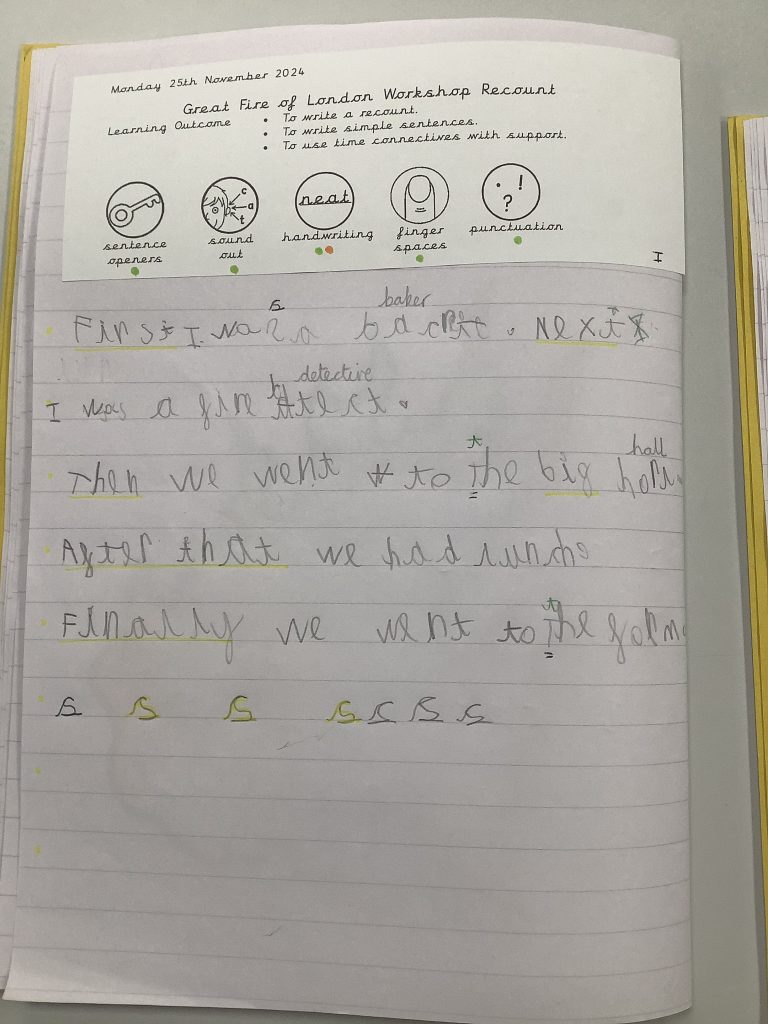 Monday 25th November 2024
Great Fire of London Workshop Recount
Learning Outcome • To write a recount.
• To write simple sentences.
• To use time connectives with support.
c
a
t
neat
. !
?
sentence openers
sound out
handwriting
finger spaces
punctuation
I
s baker
First I was a . Next
detective
I was a fire .
t hall
Then we went to the big
After that we had lunch
t
Finally we went to the
s s s s s s s